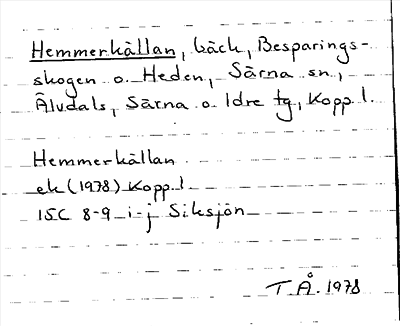 Hemmerkällan, bäck, Besparings-
skogen o. Heden, Särna sn,
Älvdals, Särna o Idre tg, Kopp l.
Hemmerkällan
ek (1978) Kopp l
15C 8-9 i-j Siksjön
T Å. 1978